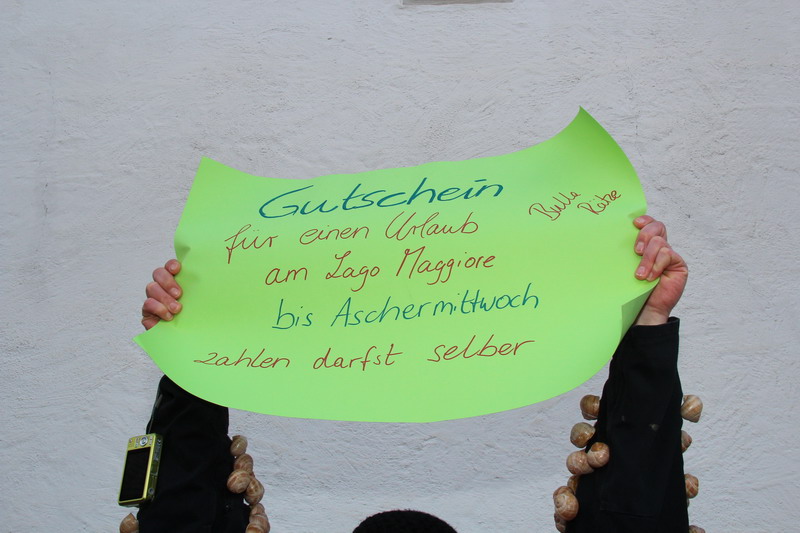 Gutschein
für einen Urlaub
am Lago Maggiore
bis Aschermittwoch
zahlen darfst selber
Bulla
Rätze